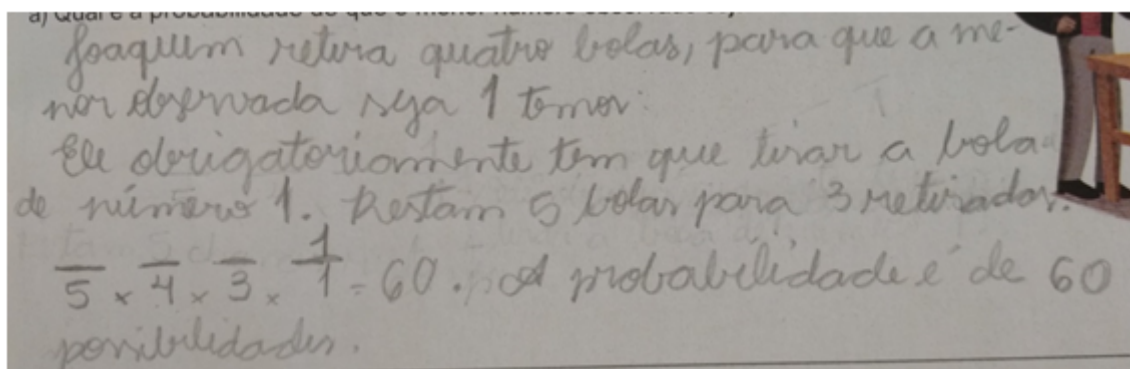 a) Qual é a probabilidade de que o menor número observado
Joaquim retira quatro bolas, para que a me-
nor observada seja 1 temos:
Ele obrigatoriamente tem que tirar a bola
de número 1. Restam 5 bolas para 3 retiradas.
— — — 1
5 × 4 × 3 × 1 = 60. A probabilidade é de 60
possibilidades.